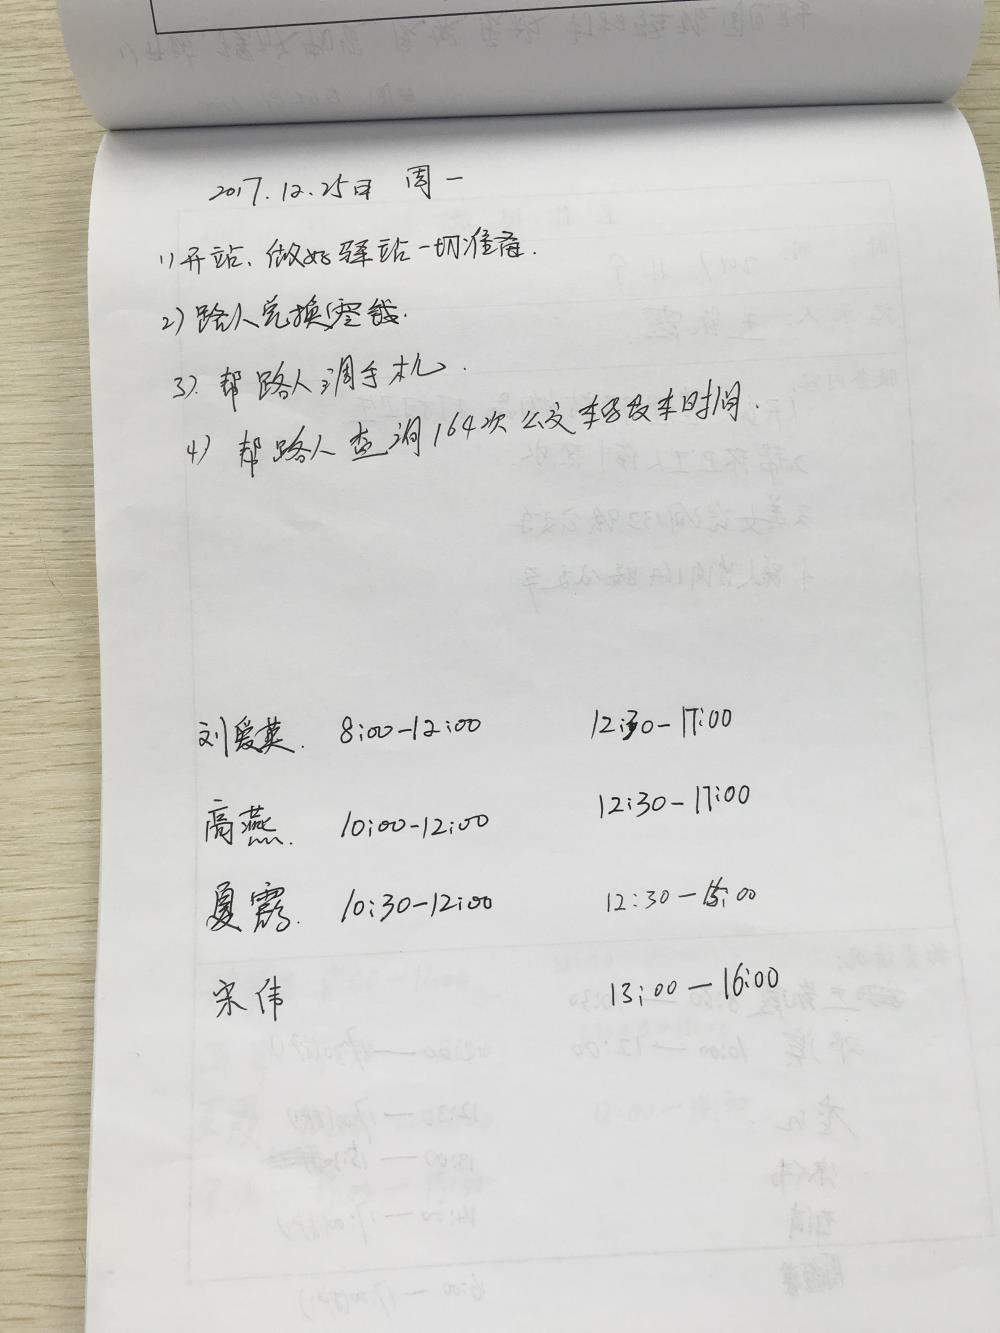 2017.12.25日 周一
1)开站、做好驿站一切准备.
2)路人兑换零钱.
3)帮路人调手机.
4)帮路人查询164次公交车好及车时间.
刘爱英. 8:00-12:00 12:30-17:00
高燕. 10:00-12:00 12:30-17:00
夏霞. 10:30-12:00 12:30-15:00
宋伟 13:00-16:00